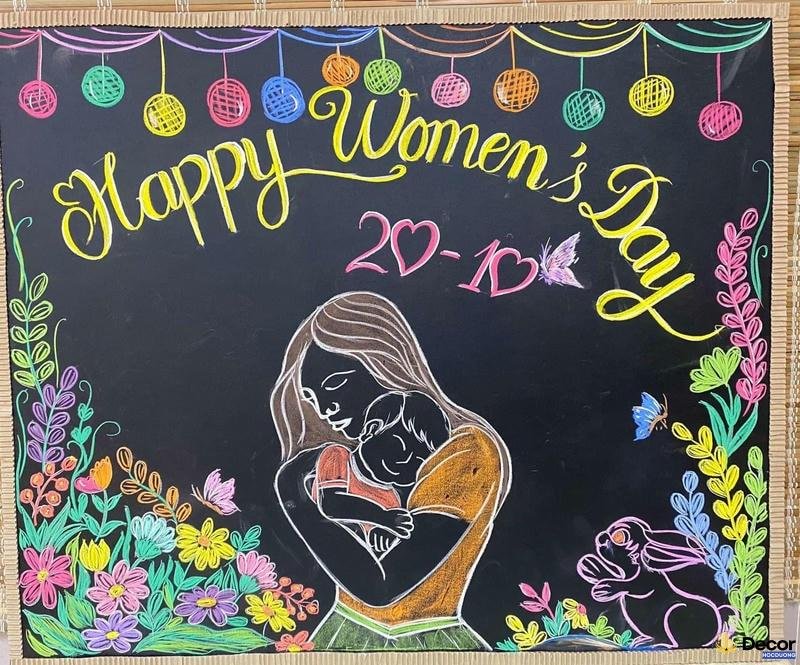 Happy Women's Day
20-10
Decor
HOCDUONG